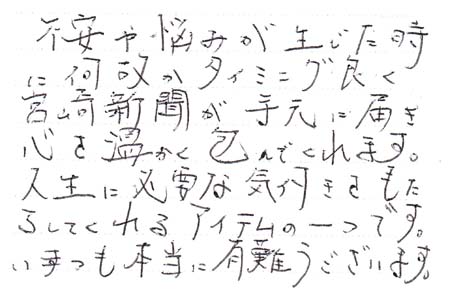 不安や悩みが生じた時
に何故かタイミング良く
宮崎新聞が手元に届き
心を温かく包んでくれます。
人生に必要な気付きをもた
らしてくれるアイテムの一つです。
いつも本当に有難うございます。